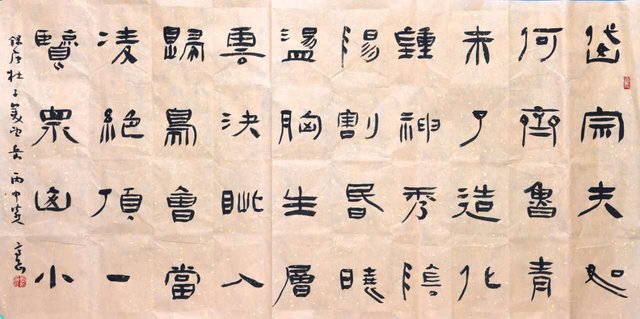 岱宗夫如
何齊魯青
未了造化
鍾神秀陰
陽割昏曉
盪胸生層
雲決眦入
歸鳥會當
凌絕頂一
覽眾山小
錄唐杜子美望岳丙申